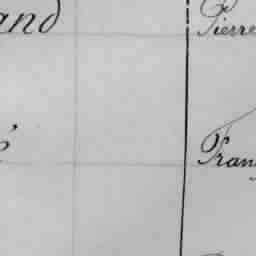 and Pierre
é Fran